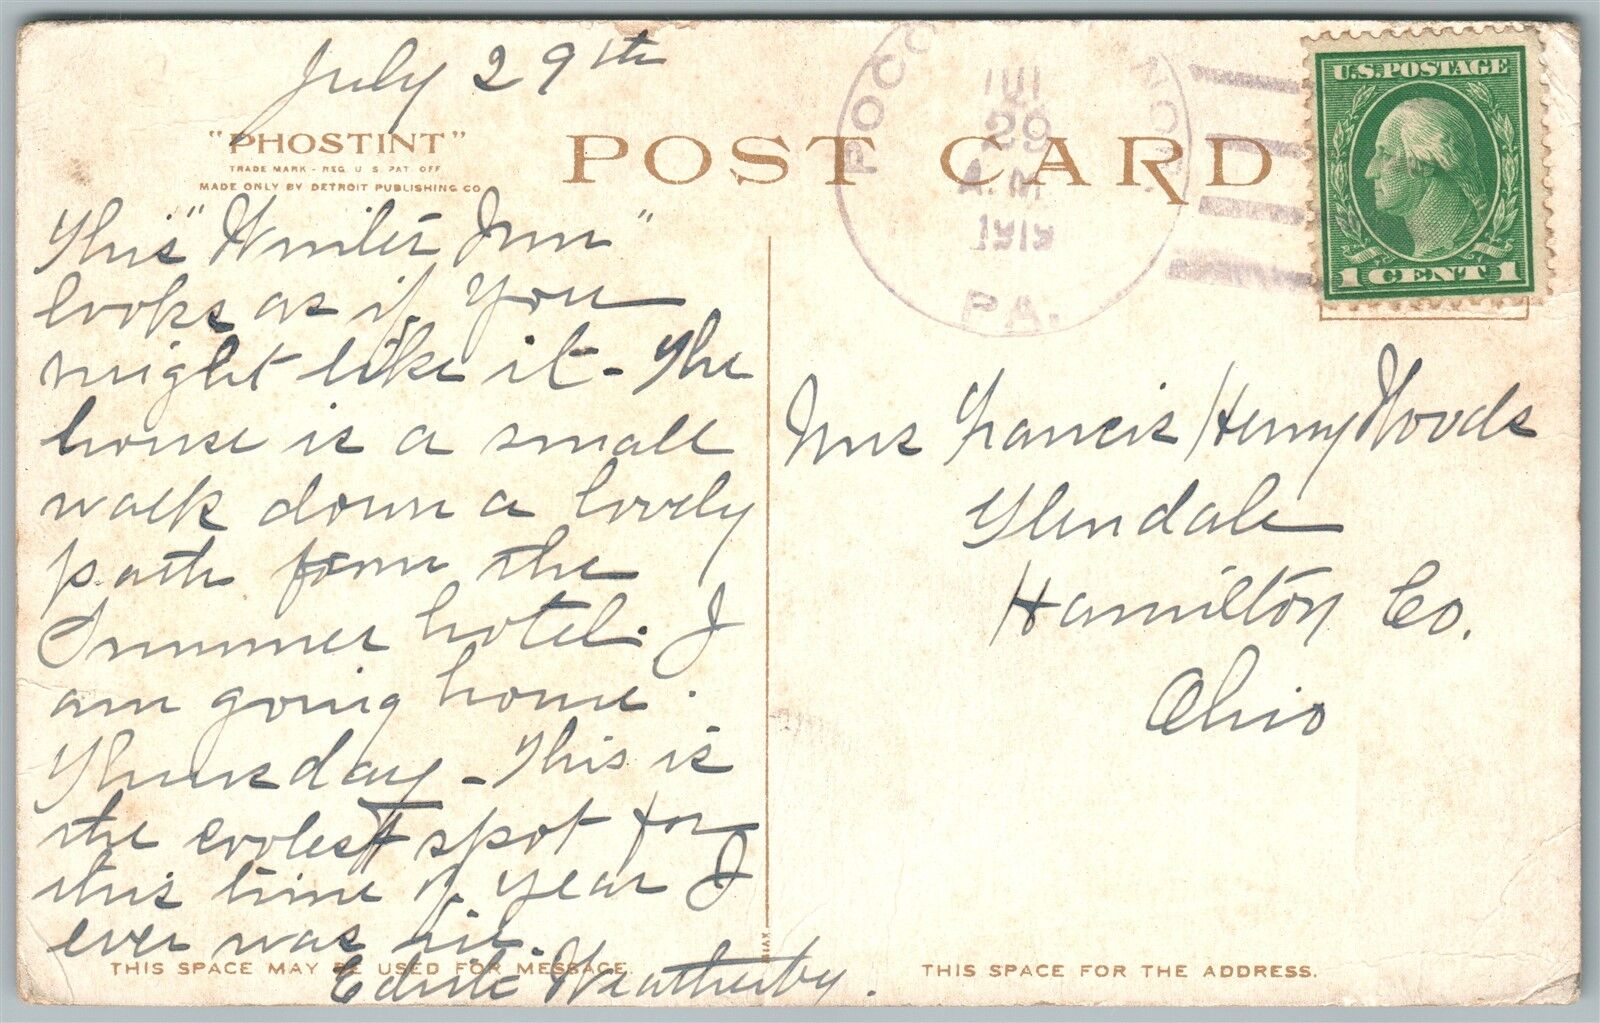 July 29th
"PHOSTINT"
TRADE MARK - REG. U.S. PAT. OFF
MADE ONLY BY DETROIT PUBLISHING CO
POST CARD
POCO MON
JUL
29
A.M.
1919
PA.
U.S. POSTAGE
1 CENT 1
This "Winter Inn"
looks as if you
might like it - The
house is a small
walk down a lovely
path from the
Summer hotel. I
am going home.
Thursday - This is
the coolest spot for
this time of year I
ever was in.
Edith Weatherby.
THIS SPACE MAY BE USED FOR MESSAGE.
Mrs Francis Henry Woods
Glendale
Hamilton Co.
Ohio
THIS SPACE FOR THE ADDRESS.